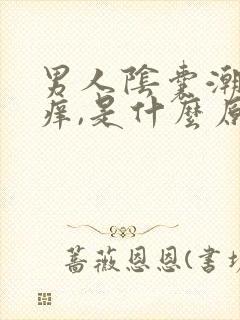 男人陰囊潮
痒,是什麼原
蔷薇恩恩(书坊